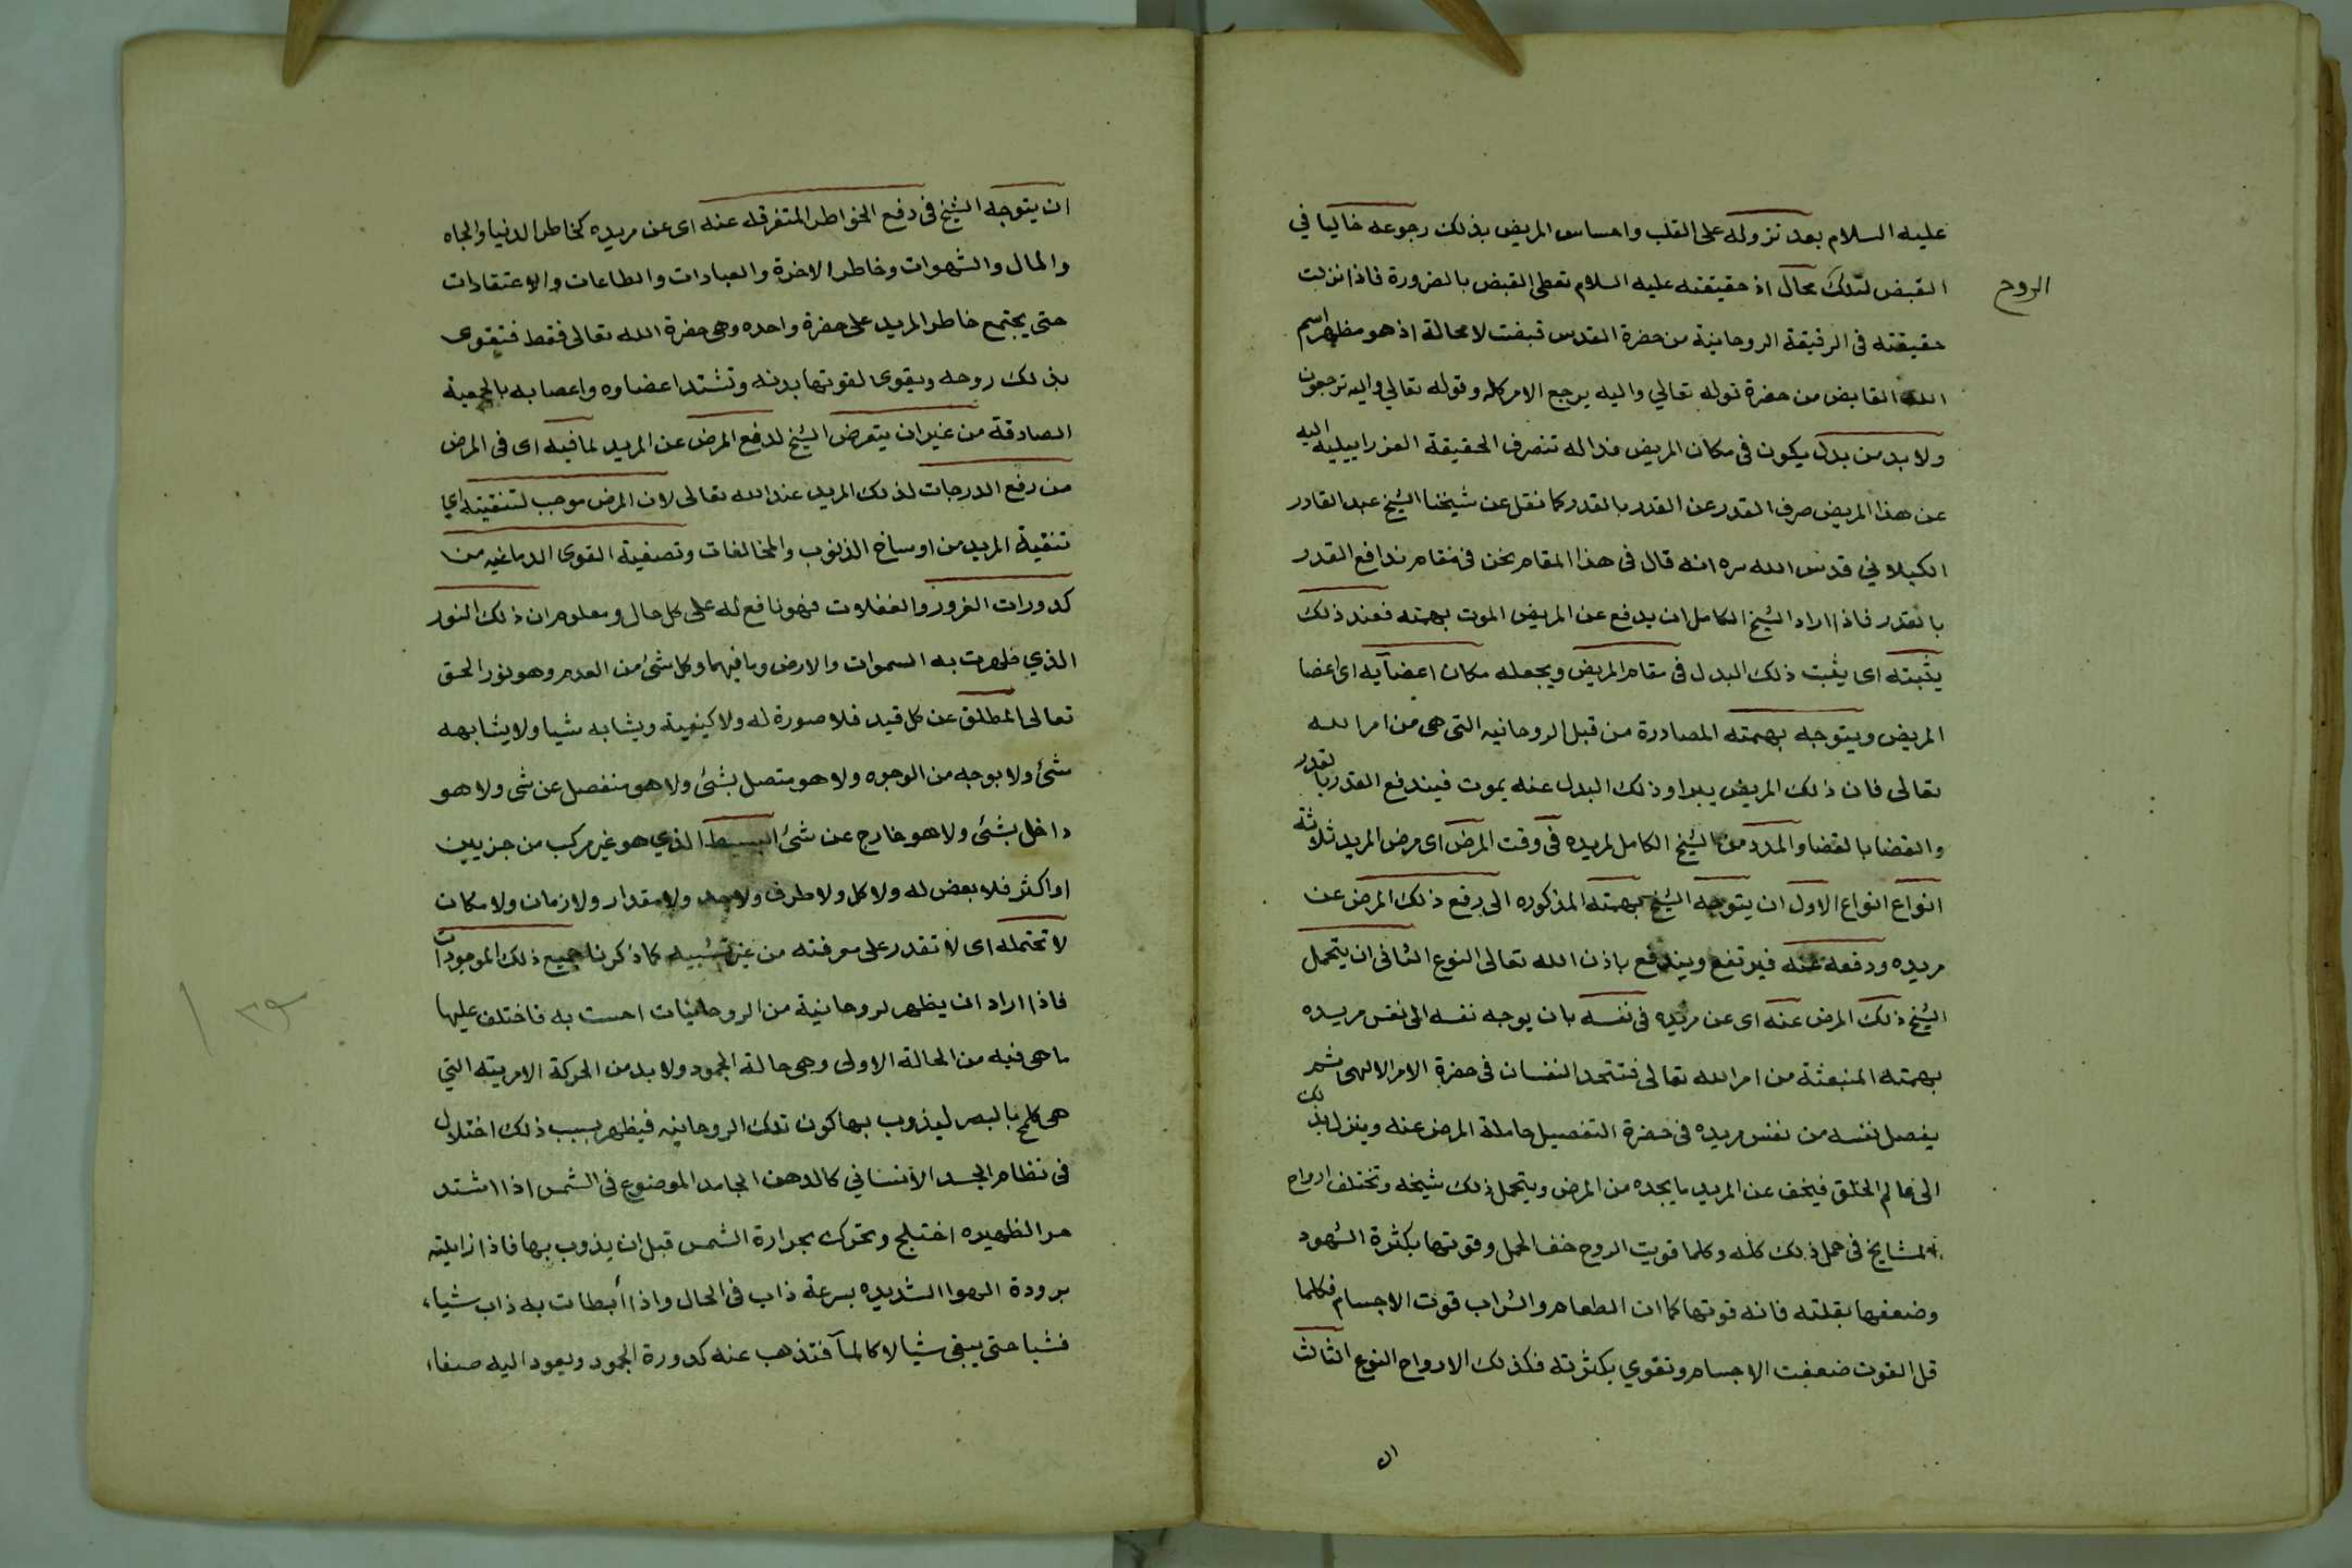 عليه السلام بعد نزوله على القلب واحساس المريض بذلك رجوعه خاليا في
القبض لتلك محال اذ حقيقته عليه السلام تعطى القبض بالضرورة فاذا نزلت
الروح
حقيقته في الرقيقة الروحانية من حضرة القدس قبضت لا محالة اذ هو مظهر اسم
الله القابض من حضرة قوله تعالي واليه يرجع الامر كله وقوله تعالي واليه ترجعون
ولا بد من بدل يكون في مكان المريض فدا له تنصرف الحقيقة العزرابيلية اليه
عن هذا المريض صرف القدر عن القدر بالقدر كما نقل عن شيخنا الشيخ عبد القادر
الكيلاني قدس الله سره انه قال في هذا المقام نحن في مقام ندافع القدر
بالقدر فاذا اراد الشيخ الكامل ان يدفع عن المريض الموت بهمته فعند ذلك
يثبته اى يثبت ذلك البدل في مقام المريض ويجعله مكان اعضآيه اى اعضا
المريض ويتوجه بهمته الصادرة من قبل الروحانيه التى هى من امر الله
تعالى فان ذلك المريض يبرا وذلك البدل عنه يموت فيندفع القدر بالقدر
والقضا بالقضا والمدد من الشيخ الكامل لمريده في وقت المرض اى مرض المريد ثلاثة
انواع انواع الاول ان يتوجه الشيخ بهمته المذكوره الى رفع ذلك المرض عن
مريده ودفعه عنه فيرتفع ويندفع باذن الله تعالى النوع الثانى ان يتحمل
الشيخ ذلك المرض عنه اى عن مريده في نفسه بان يوجه نفسه الى نفس مريده
بهمته المنبعثة من امر الله تعالى فتتحد النفسان في حضرة الامر الالهى ثم
يفصل نفسه من نفس مريده في حضرة التفصيل حاملة المرض عنه وينزل بذلك
الى عالم الخلق فيخف عن المريد ما يجده من المرض ويتحمل ذلك شيخه وتختلف ارواح
المشايخ في حمل ذلك كله وكلما قويت الروح خف الحمل وقوتها بكثرة الشهود
وضعفها بقلته فانه قوتها كما ان الطعام والشراب قوت الاجسام فكلما
قل القوت ضعفت الاجسام وتقوي بكثرته فكذلك الارواح النوع الثالث
ان
ان يتوجه الشيخ في دفع الخواطر المتفرقه عنه اى عن مريده كخاطر الدنيا والجاه
والمال والشهوات وخاطر الاخرة والعبادات والطاعات والاعتقادات
حتى يجتمع خاطر المريد على حضرة واحده وهى حضرة الله تعالى فقط فتتقوى
بذلك روحه ويقوى لقوتها بدنه وتشتد اعضاوه واعصابه بالجمعية
الصادقة من غير ان يتعرض الشيخ لدفع المرض عن المريد لما فيه اى في المرض
من رفع الدرجات لذلك المريد عند الله تعالى لان المرض موجب لتنقيته اي
تنقية المريد من اوساخ الذنوب والمخالفات وتصفية القوى الدماغيه من
كدورات الغرور والغفلات فهو نافع له على كل حال ومعلوم ان ذلك النور
الذي ظهرت به السموات والارض وما فيهما وكل شئ من العدم وهو نور الحق
تعالى المطلق عن كل قيد فلا صورة له ولا كيفية ويشابه شيا ولا يشابهه
شئ ولا بوجه من الوجوه ولا هو متصل بشئ ولا هو منفصل عن شى ولا هو
داخل بشئ ولا هو خارج عن شئ البسيط الذي هو غير مركب من جزيين
او اكثر فلا بعض له ولا كل ولا طرف ولا حد ولا مقدار ولا زمان ولا مكان
لا تحتمله اى لا تقدر على معرفته من غير تشبيه كما ذكرنا جميع ذلك الموجودات
فاذا اراد ان يظهر لروحانية من الروحانيات احست به فاختلف عليها
ما هى فيه من الحالة الاولى وهى حالة الجمود ولا بد من الحركة الامريته التي
هى كلمح بالبصر ليذوب بها كون تلك الروحانيه فيظهر بسبب ذلك اختلال
في نظام الجسد الانساني كالدهن الجامد الموضوع في الشمس اذا اشتد
حر الظهيره اختلج وتحرك بحرارة الشمس قبل ان يذوب بها فاذا زايلته
برودة الهوا الشديده بسرعة ذاب في الحال واذا أبطات به ذاب شيا
فشيا حتى يبقى شيا لا كالمآ فتذهب عنه كدورة الجمود ويعود اليه صفا